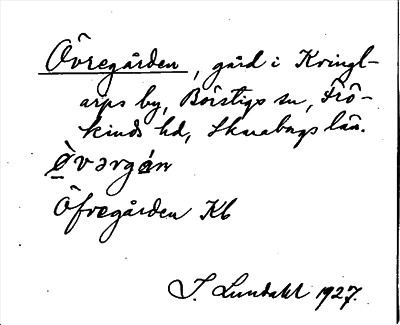 Övregården, gård i Kvingl-
arps by, Börstigs sn, Frö-
kinds hd, Skaraborgs län.
Öfvregården Kb
S. Lundahl 1927.